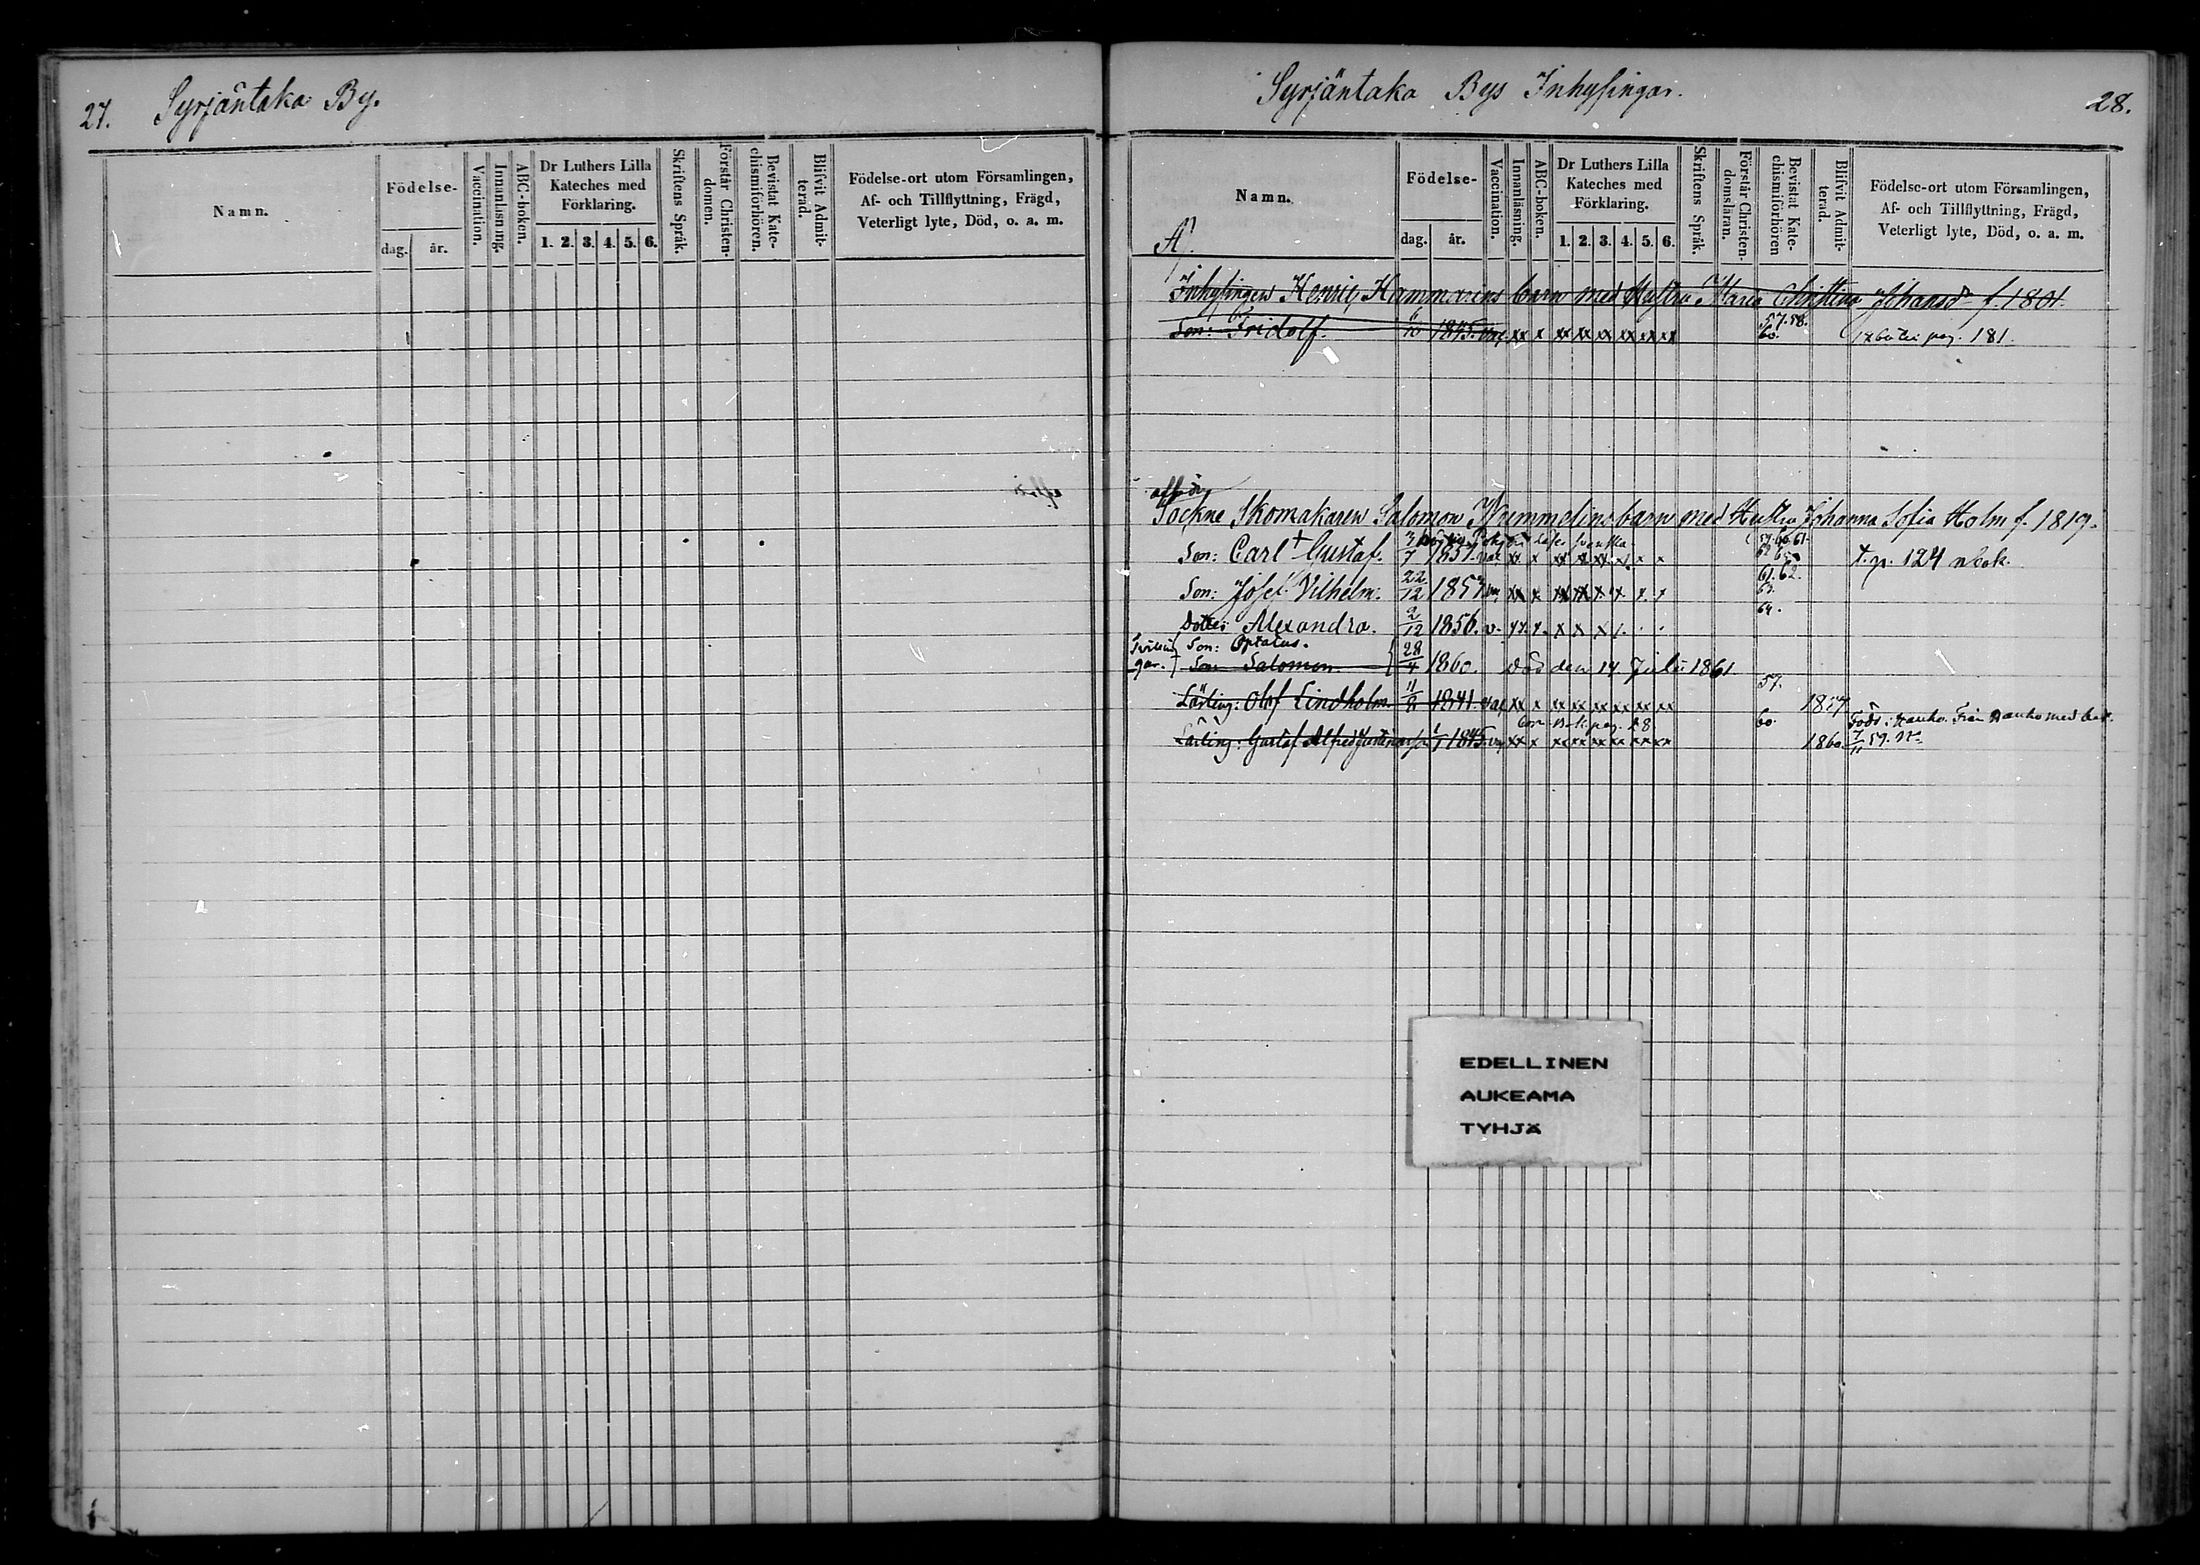 27. Syrjäntaka By.
Namn.
Födelse-
dag. år.
Vaccination.
Innanläsning.
ABC-boken.
Dr Luthers Lilla
Kateches med
Förklaring.
1. 2. 3. 4. 5. 6.
Skriftens Språk.
Förstår Christen-
domen.
Bevistat Kate-
chismiförhören.
Blifvit Admit-
terad.
Födelse-ort utom Församlingen,
Af- och Tillflyttning, Frägd,
Veterligt lyte, Död, o. a. m.
Syrjäntaka Bys Inhysingar. 28.
Namn.
Födelse-
dag. år.
Vaccination.
Innanläsning.
ABC-boken.
Dr Luthers Lilla
Kateches med
Förklaring.
1. 2. 3. 4. 5. 6.
Skriftens Språk.
Förstår Christen-
domsläran.
Bevistat Kate-
chismiförhören
Blifvit Admit-
terad.
Födelse-ort utom Församlingen,
Af- och Tillflyttning, Frägd,
Veterligt lyte, Död, o. a. m.
Inhysingen Henric Hammarens barn med Hustru Maria Christina Johansdr f. 1801.
57. 58.
Son: Fridolf. 6/10 1845. vac. xx x xx xx xx xx xx xx 60. pag. 181.
Sockne Skomakaren Salomon Wrummelins barn med Hustru Johanna Sofia Holm f. 1819.
läser svenska.
Son: Carl Gustaf. 3/7 1851. t. p. 124 n bok.
61. 62.
Son: Josef Vilhelm. 22/12 1853 63.
64.
Dotter Alexandra. 2/12 1856. v.
Tvillin
gar.
Son: Optatus.
Son: Salomon. 28/4 1860. Död den 14 Juli 1861
57.
Lärling: Olof Lindholm. 11/8 1841. vac xx x xx xx xx xx xx xx 1857
60. Född i Nauvo. Från Nauvo med bet.
Lärling: Gustaf Alfred 1/1 1845. xx x xx xx xx xx xx xx 1860. 7/11 59.
EDELLINEN
AUKEAMA
TYHJÄ